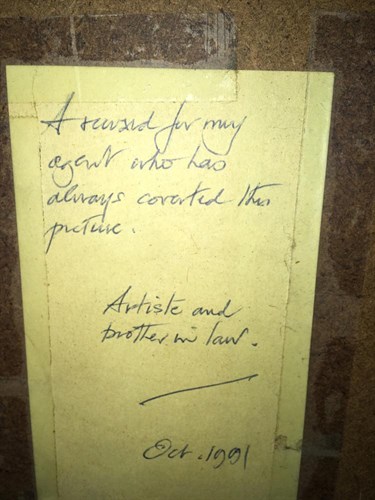 A reward for my
agent who has
always coverted this
picture.
Artiste and
brother in law.
Oct. 1991